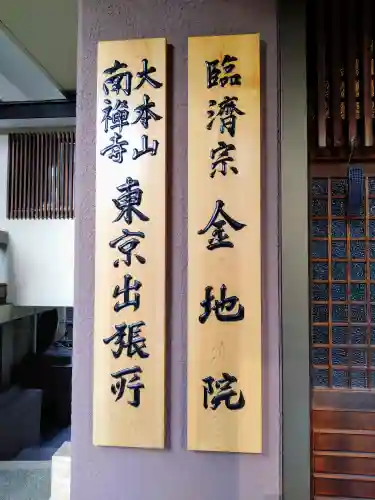 臨済宗 金地院
大本山
南禅寺
東京出張所